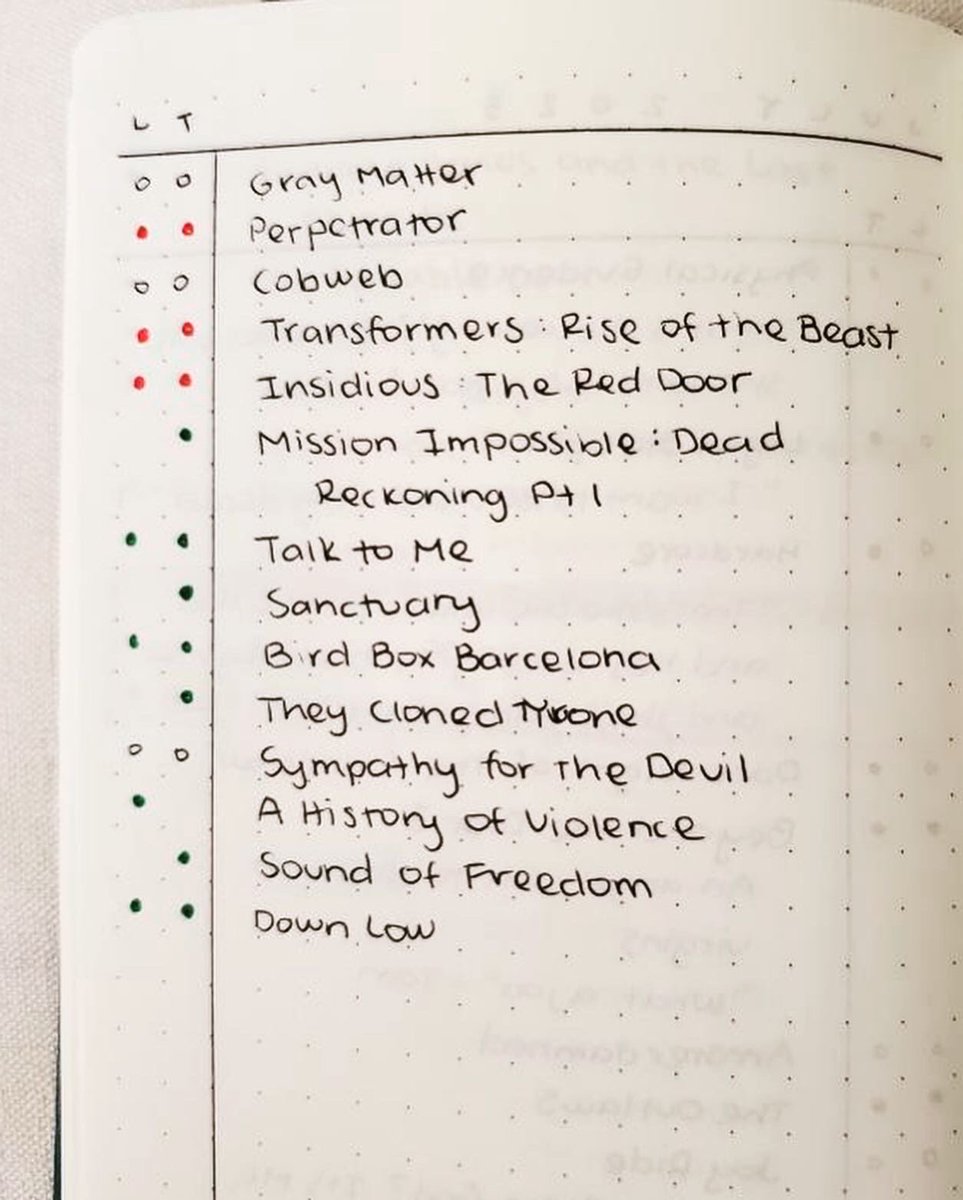 L T
Gray Matter
Perpetrator
Cobweb
Transformers: Rise of the Beast
Insidious: The Red Door
Mission Impossible: Dead
Reckoning Pt 1
Talk to Me
Sanctuary
Bird Box Barcelona
They Cloned Tyrone
Sympathy for The Devil
A History of Violence
Sound of Freedom
Down Low